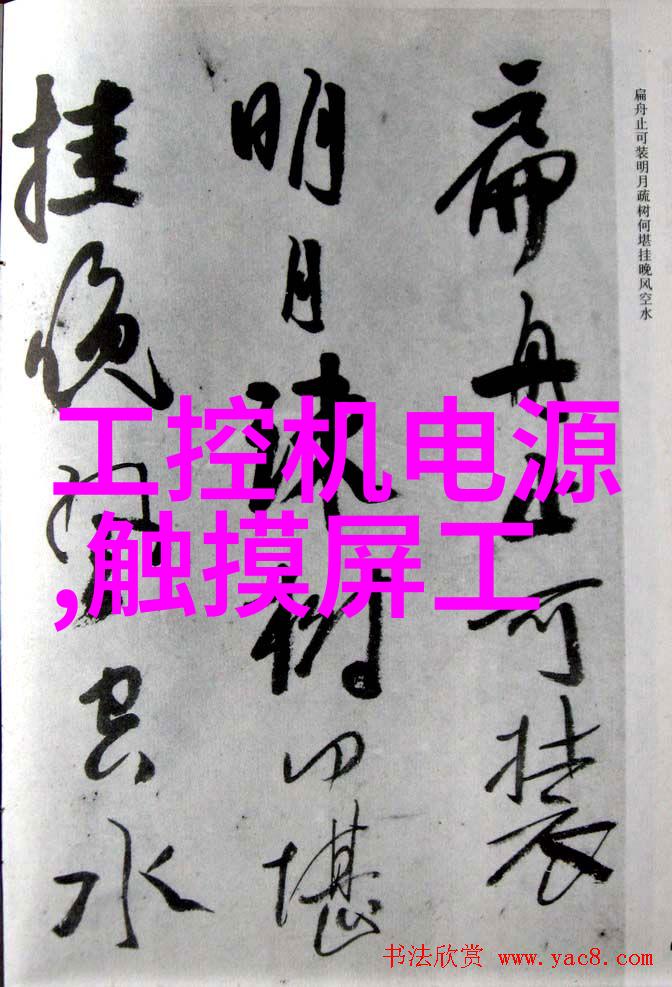 扁舟止可装
明月疏树何堪
挂晚风空水
扁舟止可装明月疏树何堪挂晚风空水
工控机电源
,触摸屏工
书法欣赏 www.yac8.com